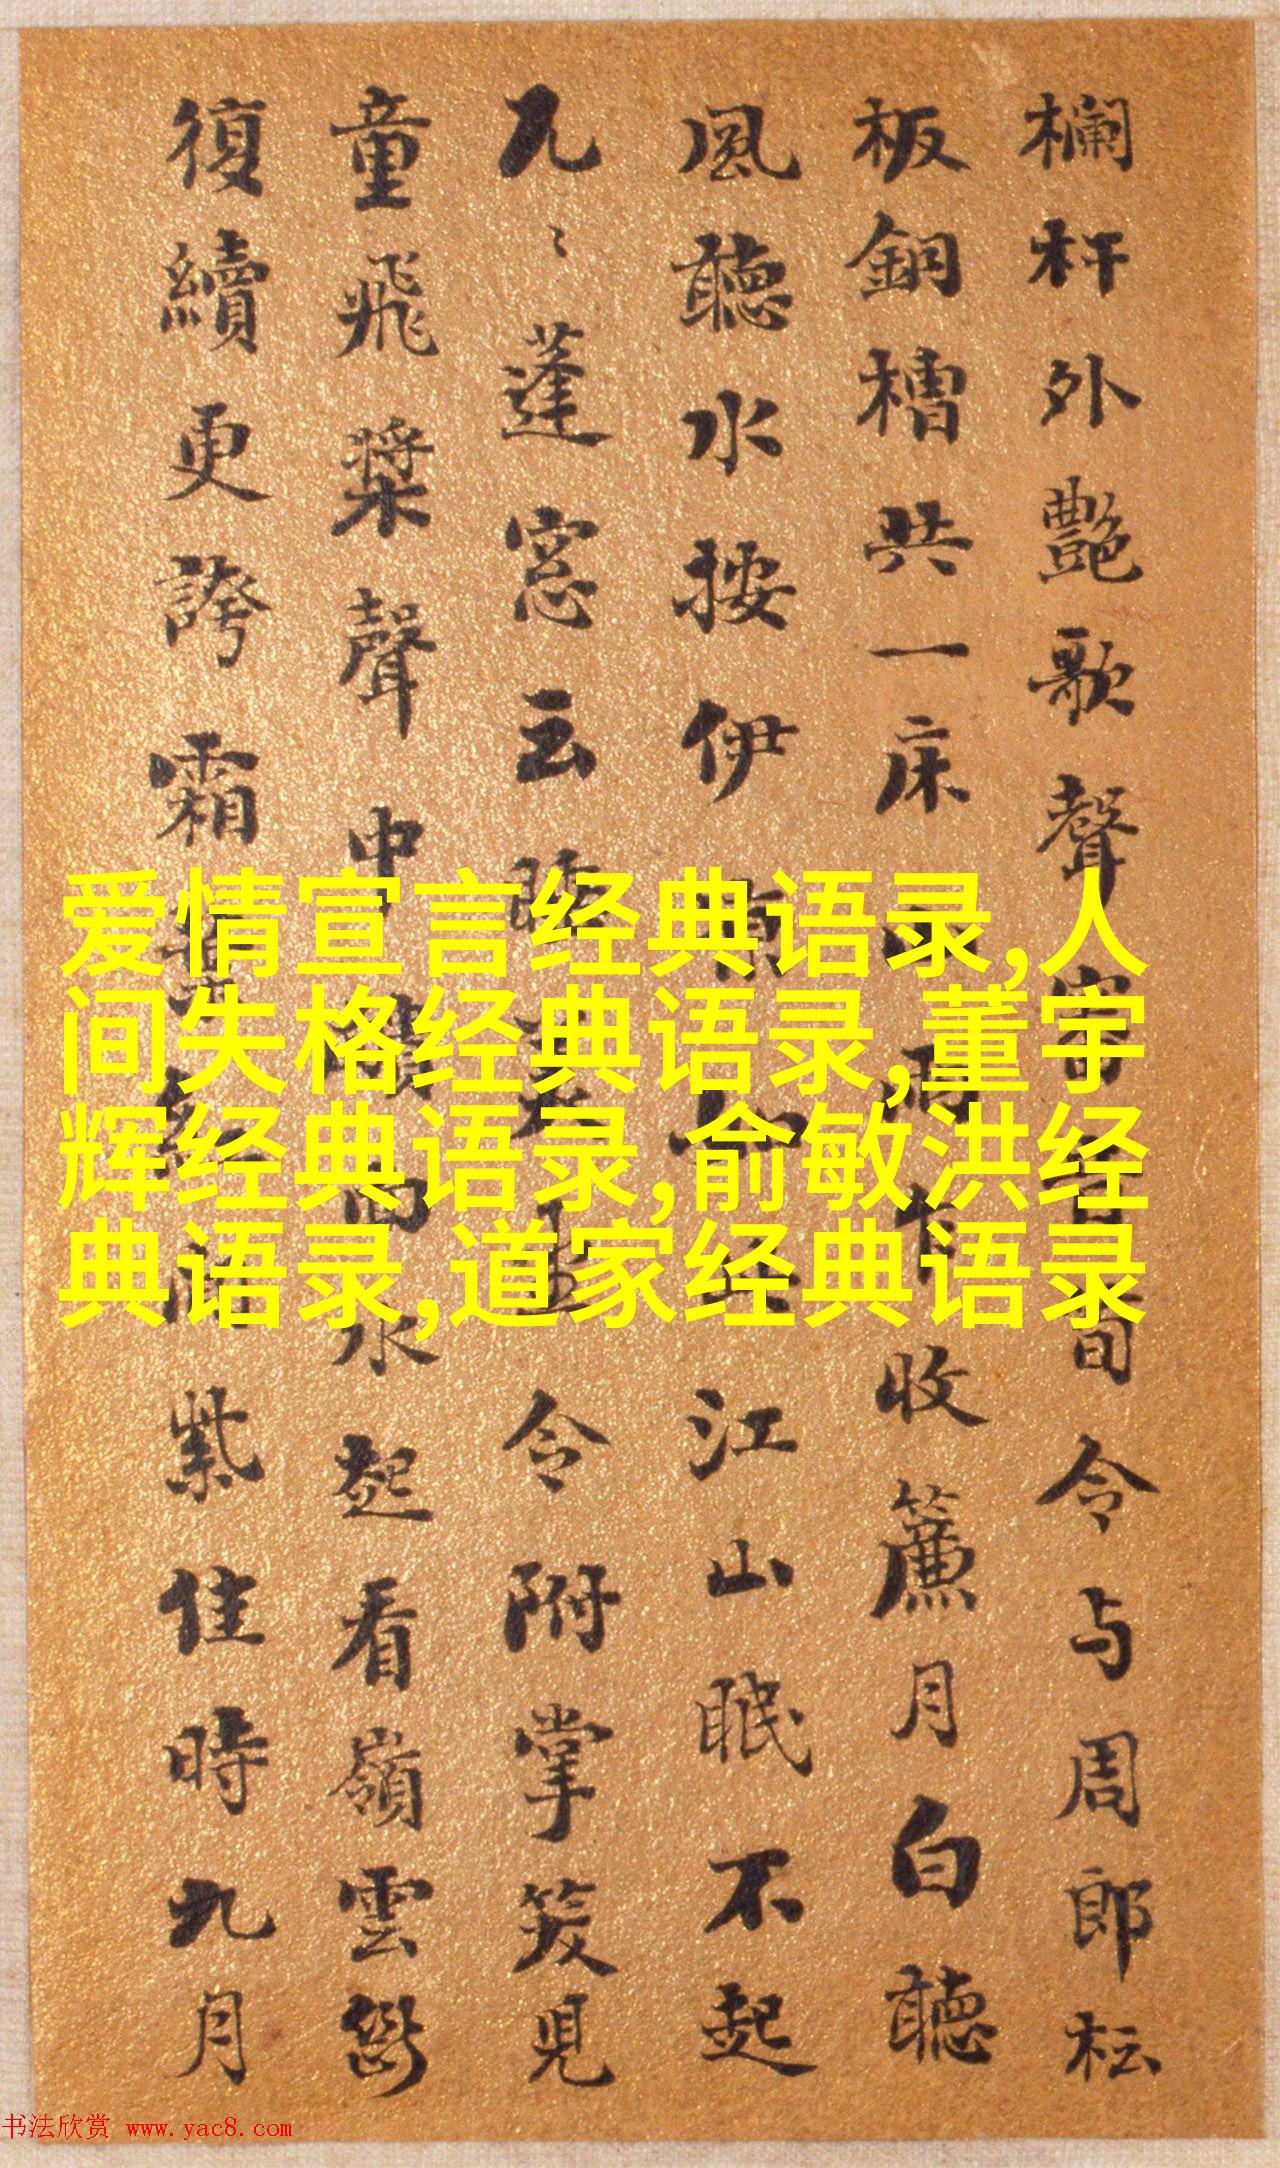 欄杆外艷歌聲令与周郎
板銅槽共一床雨乍收簾月白聽
風聽水按伊江山眠不起
蓬窓云令附掌笑見
童飛槳聲中水起看嶺雲
復續更誇霜紫佳時九月
爱情宣言经典语录,人
间失格经典语录,董宇
辉经典语录,俞敏洪经
典语录,道家经典语录
书法欣赏 www.yac8.com